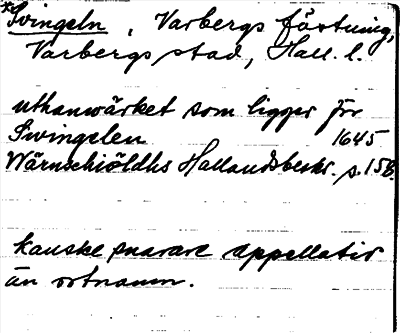 *Svingeln, Varbergs fästning,
Varbergs stad, Hall. l.
uthanwärket som ligger för
Swingelen 1645
Wärnschiöldhs Hallandsbeskr. s. 158.
kanske snarare appellativ
än ortnamn.